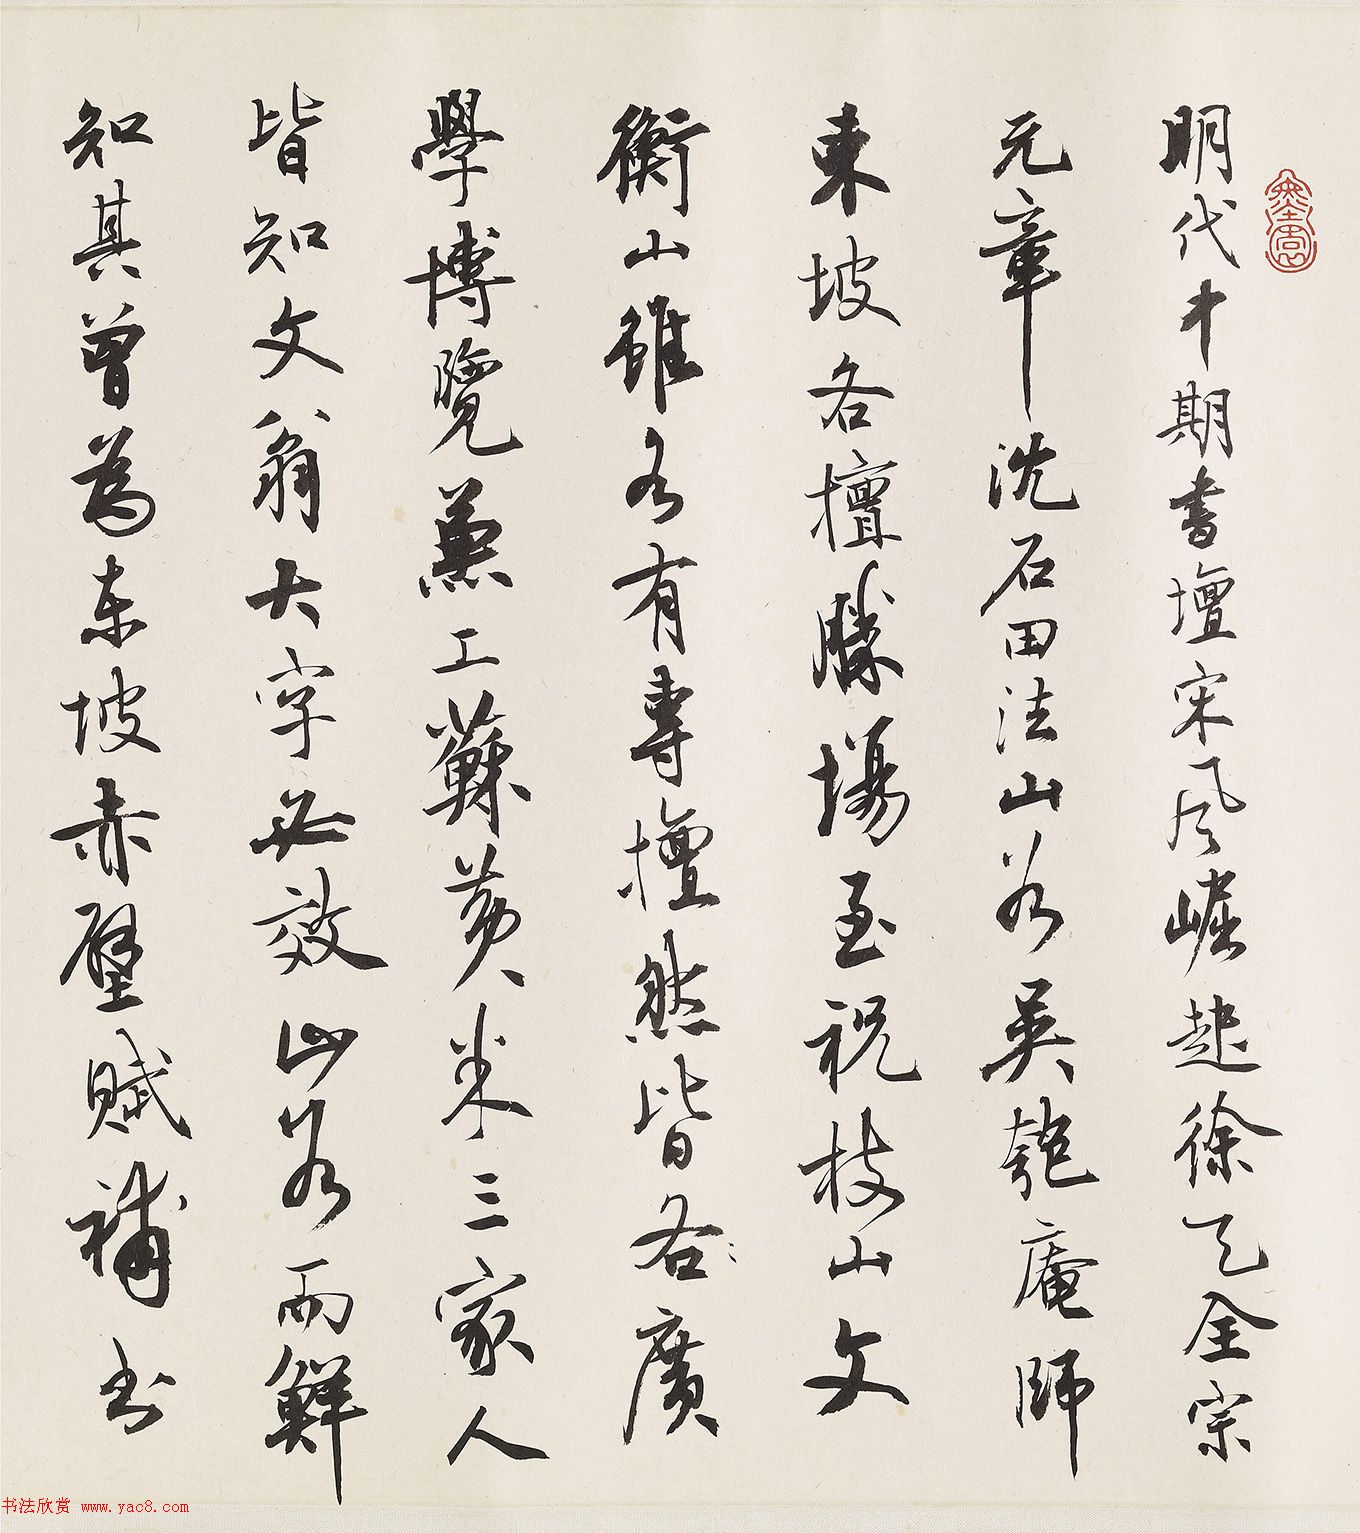 明代中期書壇宋風崛起徐天全宗
元章沈石田法山谷吳匏庵師
東坡各擅勝場至祝枝山文
衡山雖各有專擅然皆各廣
學博覽兼工蘇黃米三家人
皆知文翁大字必效山谷而鮮
知其曾為東坡赤壁賦補書
书法欣赏 www.yac8.com